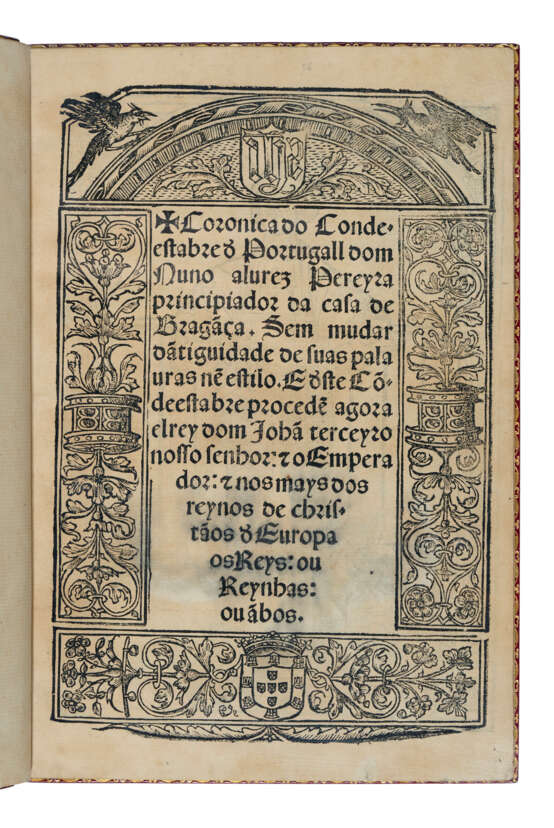 ✠Coronica do Conde-
estabre ð Portugall dom
Nuno alurez Pereyra
principiador da casa de
Bragãça. Sem mudar
dãtiguidade de suas pala
uras nē estilo. E ðste Cõ-
deestabre procedē agora
elrey dom Johã terceyro
nosso senhor: ⁊ o Empera
dor: ⁊ nos mays dos
reynos de chris-
tãos ð Europa
os Reys: ou
Reynhas:
ou ãbos.